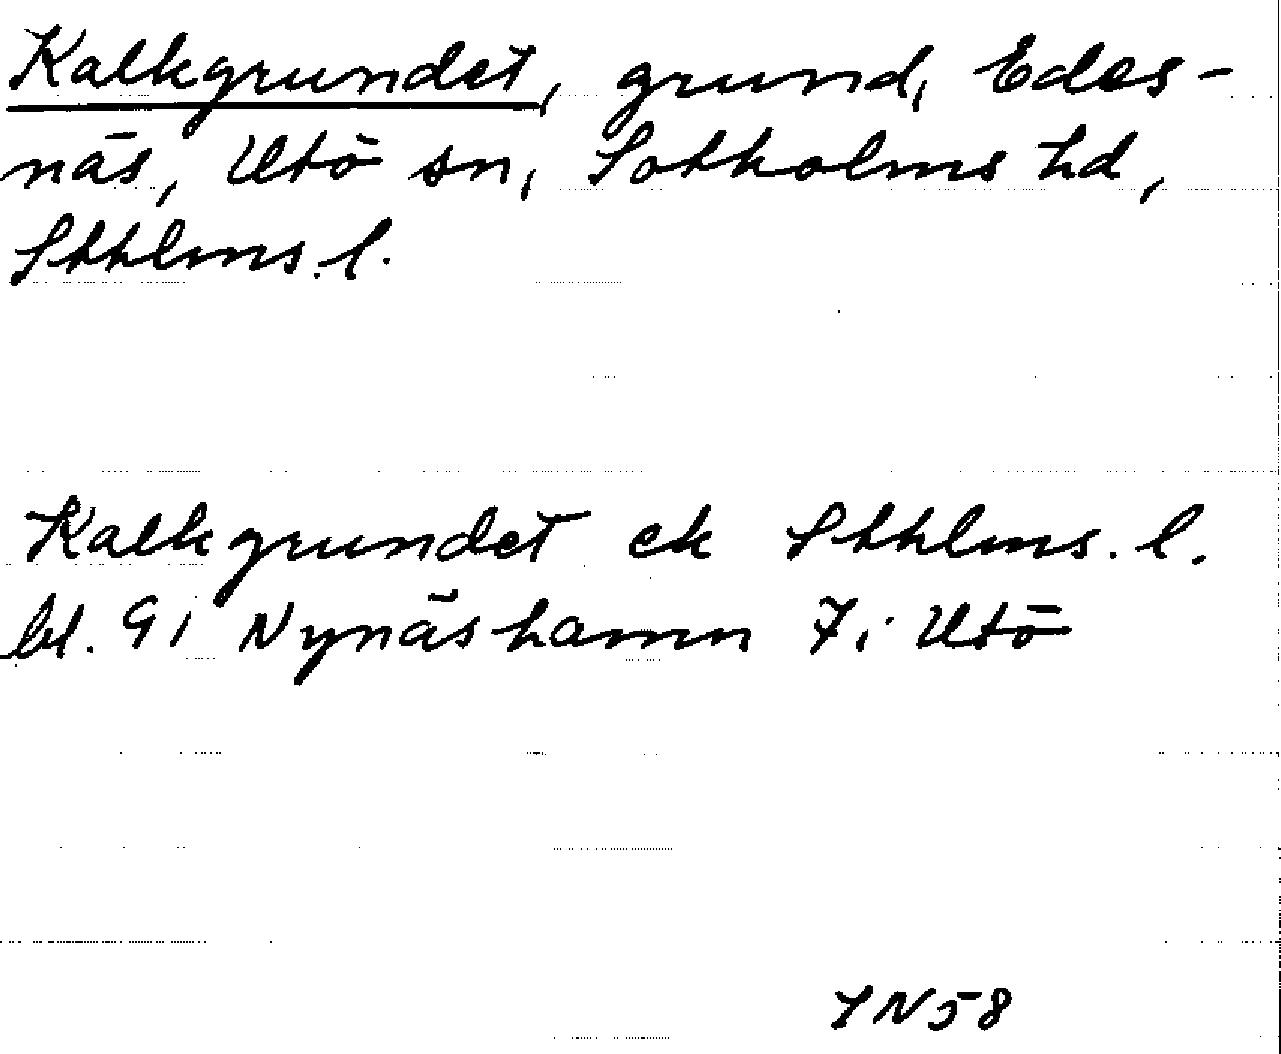 Kalkgrundet, grund, Edes-
näs, Utö sn, Sotholms hd,
Sthlms. l.
Kalkgrundet ek Sthlms. l.
bl. 91 Nynäshamn 7i Utö
IN58